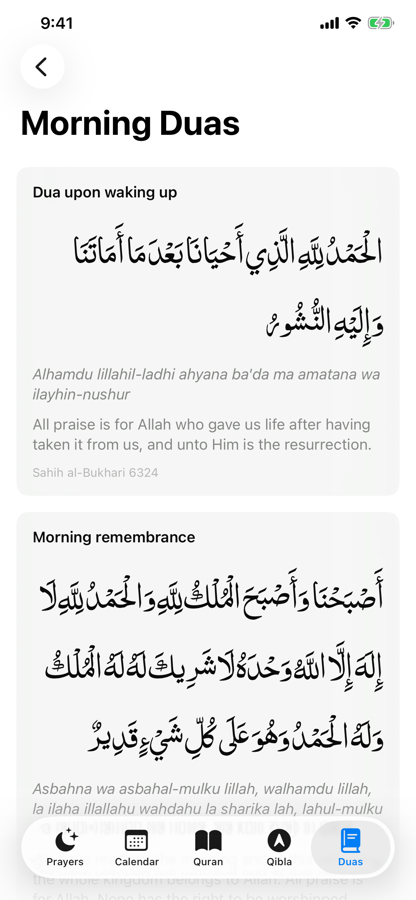 9:41
Morning Duas
Dua upon waking up
الْحَمْدُ لِلَّهِ الَّذِي أَحْيَانَا بَعْدَ مَا أَمَاتَنَا
وَإِلَيْهِ النُّشُورُ
Alhamdu lillahil-ladhi ahyana ba'da ma amatana wa
ilayhin-nushur
All praise is for Allah who gave us life after having
taken it from us, and unto Him is the resurrection.
Sahih al-Bukhari 6324
Morning remembrance
أَصْبَحْنَا وَأَصْبَحَ الْمُلْكُ لِلَّهِ وَالْحَمْدُ لِلَّهِ لَا
إِلَهَ إِلَّا اللَّهُ وَحْدَهُ لَا شَرِيكَ لَهُ لَهُ الْمُلْكُ
وَلَهُ الْحَمْدُ وَهُوَ عَلَى كُلِّ شَيْءٍ قَدِيرٌ
Asbahna wa asbahal-mulku lillah, walhamdu lillah,
la ilaha illallahu wahdahu la sharika lah, lahul-mulku
Prayers
Calendar
Quran
Qibla
Duas
the whole kingdom belongs to Allah. All praise is
for Allah. None has the right to be worshipped